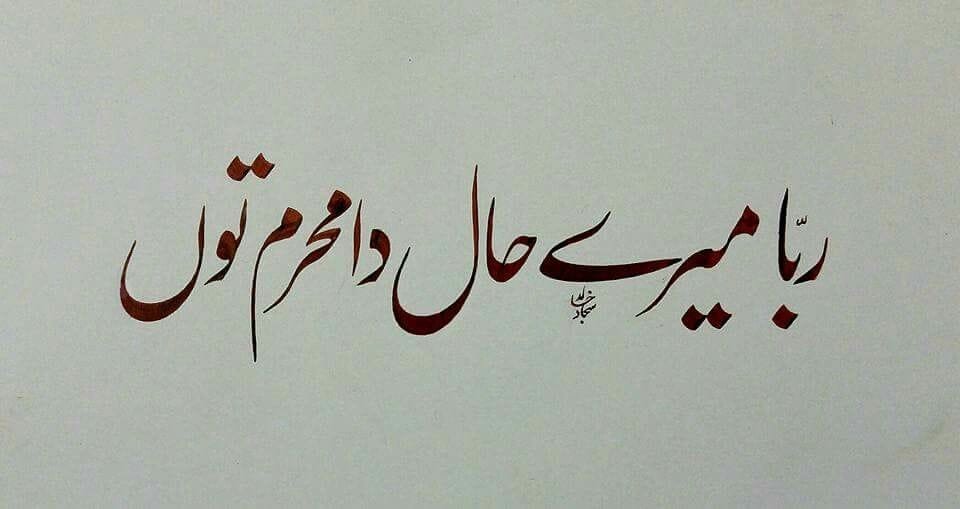 ربّا میرے حال دا محرم توں
خالد سجاد